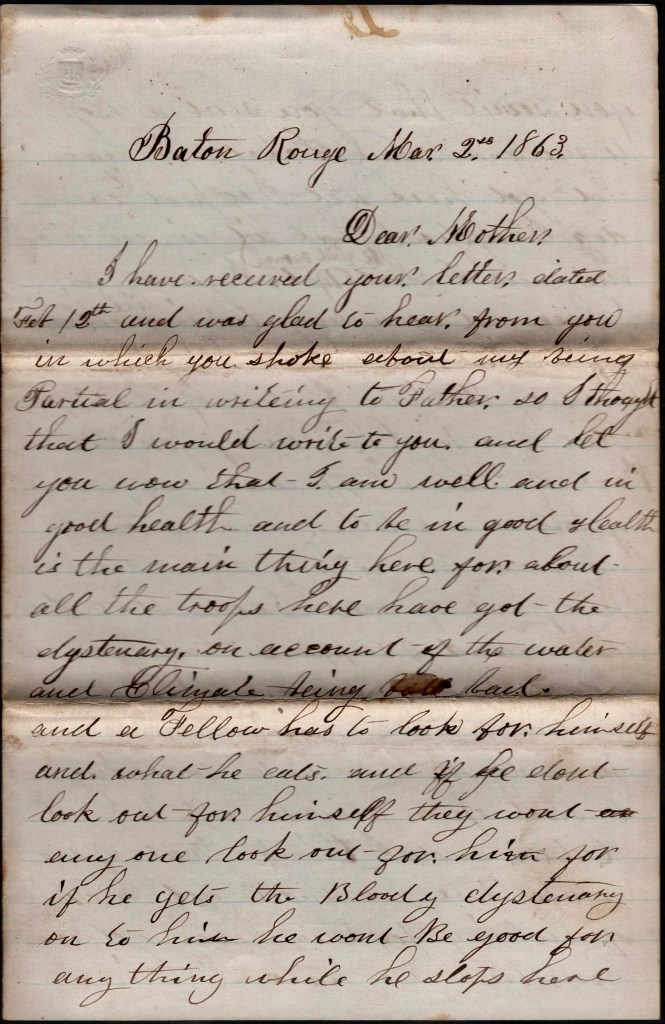 Baton Rouge Mar. 2nd 1863.
Dear Mother
I have received your letter dated
Feb 12th and was glad to hear from you
in which you spoke about my being
Partial in writeing to Father. so I thought
that I would write to you. and let
you now that I am well and in
good health and to be in good Health
is the main thing here for about
all the troops here have got the
dystenary, on account of the water
and Climate being bad.
and a Fellow has to look for himself
and what he eats. and if he dont
look out for himself they wont
any one look out for him for
if he gets the Bloody dystenary
on to him he wont Be good for
any thing while he stops here